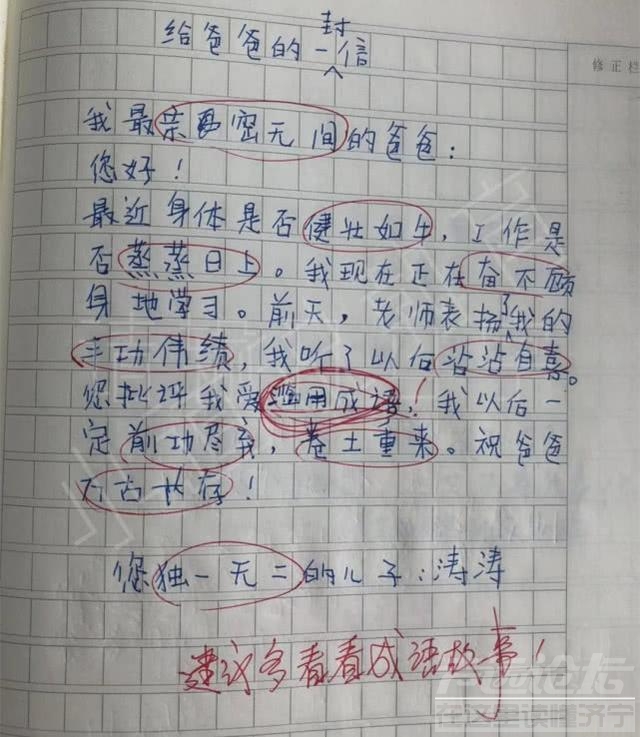 给爸爸的一封信
修正栏
我最亲密无间的爸爸：
您好！
最近身体是否健壮如牛，工作是
否蒸蒸日上。我现在正在奋不顾
身地学习。前天，老师表扬了我的
丰功伟绩，我听了以后沾沾自喜。
您批评我爱滥用成语！我以后一
定前功尽弃，卷土重来。祝爸爸
万古长存！
您独一无二的儿子：涛涛
建议多看看成语故事！
在这里读懂济宁